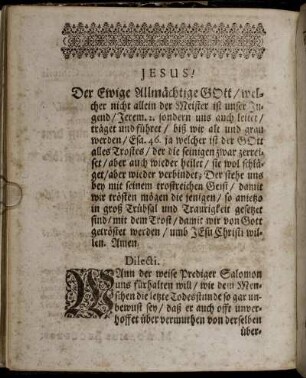 JESUS!
Der Ewige Allmächtige GOtt / wel-
cher nicht allein der Meister ist unser Ju-
gend / Jerem. 2. sondern uns auch leitet /
träget und führet / biß wir alt und grau
werden / Esa. 46. ja welcher ist der GOtt
alles Trostes / der die seinigen zwar zerreis-
set / aber auch wieder heilet / sie wol schlä-
get / aber wieder verbindet; Der stehe uns
bey mit seinem trostreichen Geist / damit
wir trösten mögen die jenigen / so anietzo
in groß Trübsal und Traurigkeit gesetzet
sind / mit dem Trost / damit wir von Gott
getröstet werden / umb JEsu Christi wil-
len. Amen.
Dilecti.
WAnn der weise Prediger Salomon
uns fürhalten will / wie dem Men-
schen die letzte Todesstunde so gar un-
bewust sey / daß er auch offt unver-
hoffet über vermuthen von derselben
über-